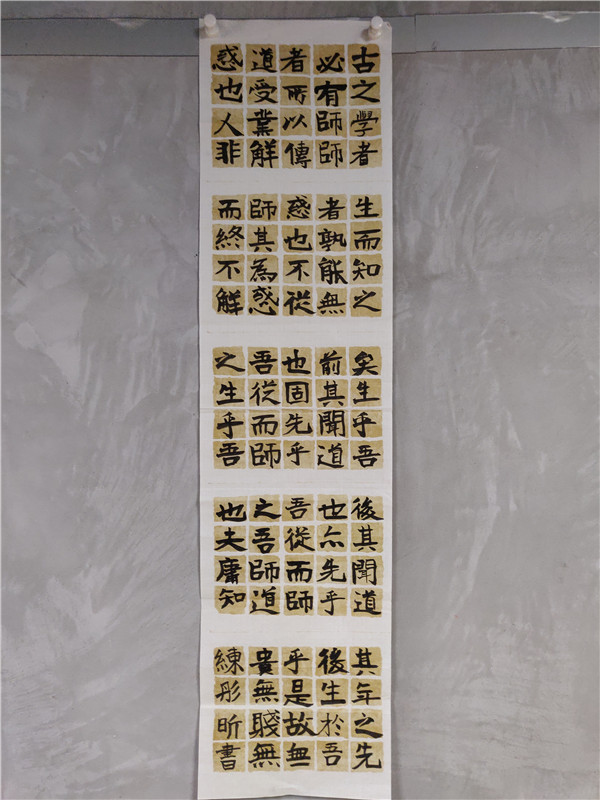 古之學者
必有師師
者所以傳
道受業解
惑也人非
生而知之
者孰能無
惑也不從
師其為惑
而終不解
矣生乎吾
前其聞道
也固先乎
吾從而師
之生乎吾
後其聞道
也亦先乎
吾從而師
之吾師道
也夫庸知
其年之先
後生於吾
乎是故無
貴無賤無
練彤昕書